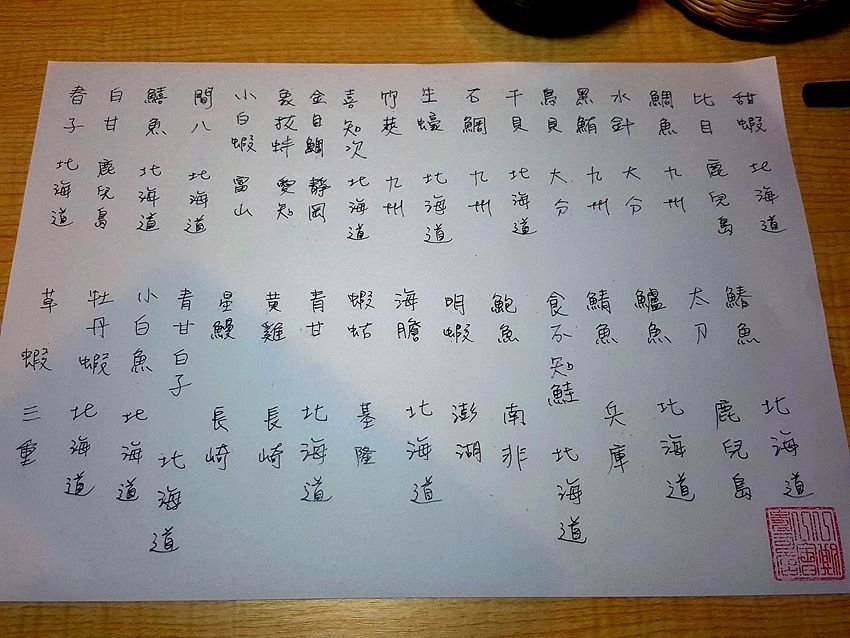 甜蝦 北海道
比目 鹿兒島
鯛魚 九州
水針 大分
黑鮪 九州
鳥貝 大分
干貝 北海道
石鯛 九州
生蠔 北海道
竹莢 九州
喜知次 北海道
金目鯛 靜岡
象拔蚌 愛知
小白蝦 富山
間八 北海道
鱚魚 北海道
白甘 鹿兒島
春子 北海道
鰆魚 北海道
太刀 鹿兒島
鱸魚 北海道
鯖魚 兵庫
食不知鮭 北海道
鮑魚 南非
明蝦 澎湖
海膽 北海道
蝦蛄 基隆
青甘 北海道
黃雞 長崎
星鰻 長崎
青甘白子 北海道
小白魚 北海道
牡丹蝦 北海道
草蝦 三重